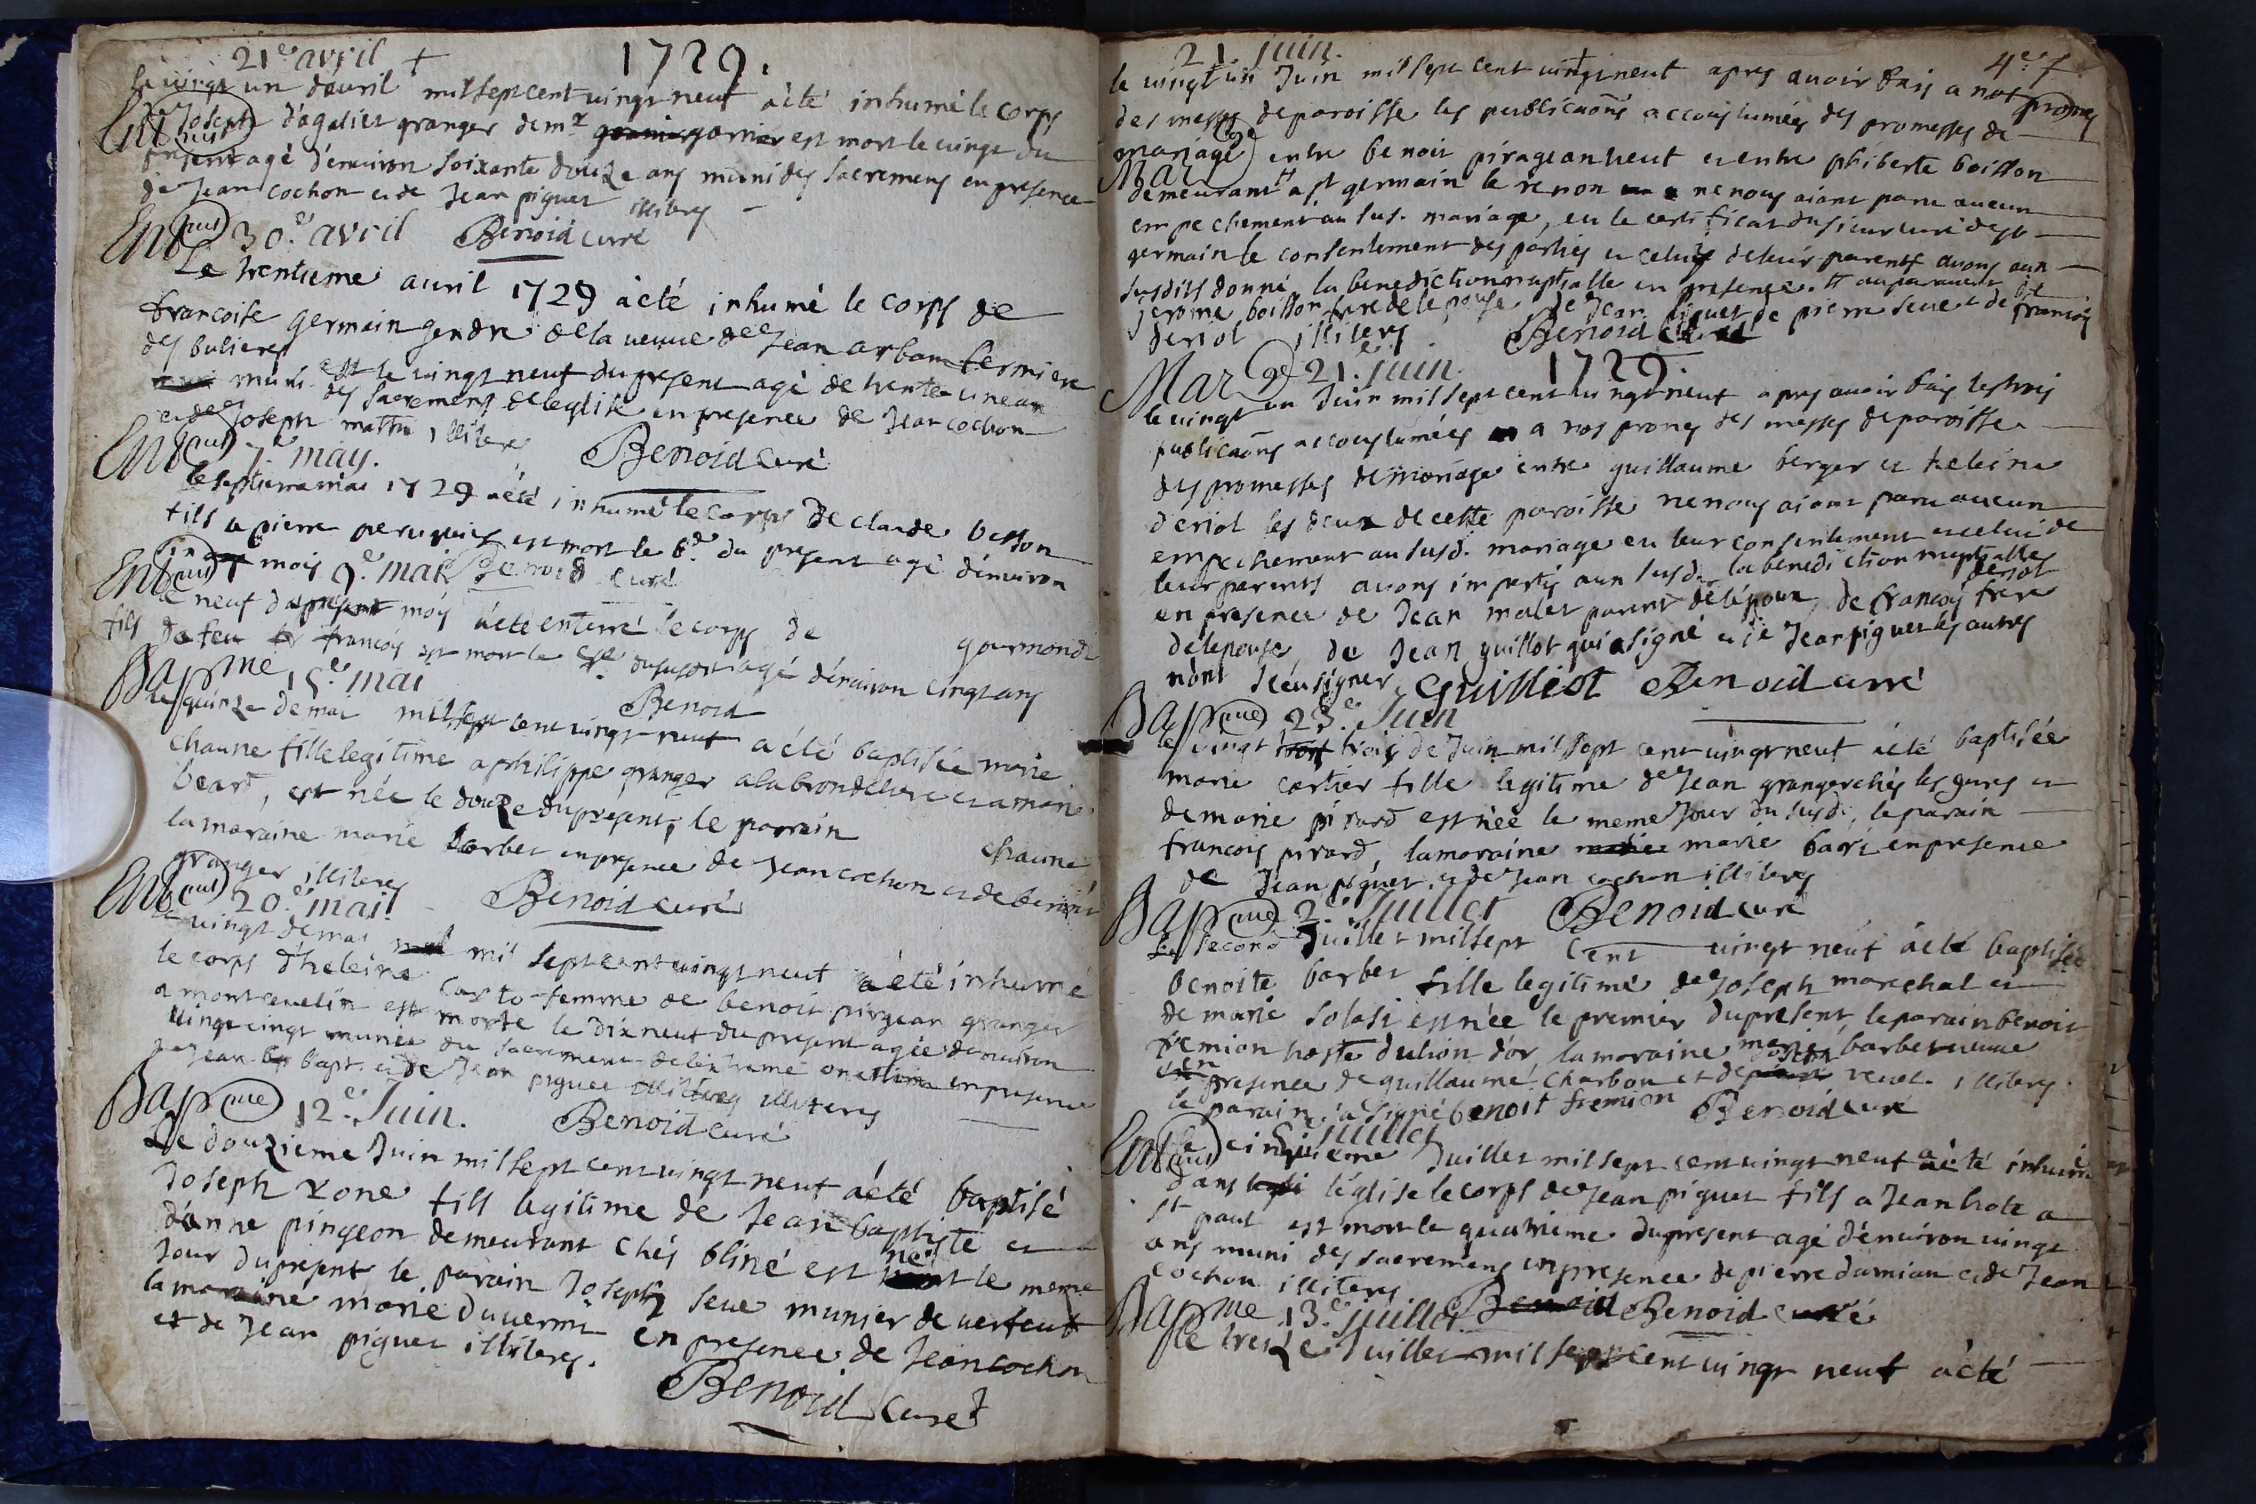 21e avril + 1729.
le vingt un d'avril mil sept cent vingt neuf a èté inhumé le corps
de Joseph d'agalier granger de mr garnier est mort le vingt du
Entmt
present agè d'environ soixante douze ans muni des sacremens en presence
de Jean cochon et de Jean piguet illiteres
Entmt 30e avril Benoid curé
Le trentieme avril 1729 a èté inhumé le corps de
francoise germain gendre de la veuve de Jean arban fermiere
des bulieres est le vingt neuf du present agè de trente un an
muni des sacremens de l'eglise en presence de Jean cochon
et de Joseph illitere Benoid curé
Entmt 7e may.
le septieme mai 1729 a èté inhumé le corps de claude besson
fils a pierre peruquier est mort le 6e du present agè d'environ
cinq mois Benoid curé
Entmt 9e mai
le neuf du present mois a èté enterré le corps de gourmond
fils de feu francois est mort le du susdit agé d'environ cinq ans
Bapme 15e mai Benoid
le quinze de mai mil sept cent vingt neuf a èté baptisée marie
chaune fille legitime a philippe granger a la brondeliere et a marie
beart, est née le douze du present, le parrain chaune
la maraine marie barbet en presence de Jean cochon et de benoit
granger illiteres Benoid curé
Entmt 20e mai
le vingt de mai mil sept cent vingt neuf a èté inhumé
le corps d'heleine Carto femme de benoit pirjean granger
a montcevelin est morte le dix neuf du present agée d'environ
vingt cinq munie du sacrement de l'extreme onction en presence
de Jean bapt. et de Jean piguet illiteres
Bapme 12e Juin. Benoid curé
Le douzieme Juin mil sept cent vingt neuf a èté baptisé
Joseph rone fils legitime de Jean baptiste et
d'anne pingeon demeurant chés bliné est né le meme
jour du present le parain Joseph seve munier de verfeut
la maraine marie duvernis en presence de Jean cochon
et de Jean piguet illiteres.
Benoid curé
21. juin. 4e f
le vingt un Juin mil sept cent vingt neuf apres avoir fais a nos prones
des messes de paroisse les publicaons accoustumées des promesses de
mariage entre benoit pirageon veuf et entre philiberte boisson
Marge
demeurant a st germain le renon ne nous aiant paru aucun
empechement au sus. mariage, eu le certificat du sieur curé de st
germain le consentement des parties et celui de leur parents avons aux
susdits donné la benediction nuptialle en presence de
jerome boisson frere de l'epouse de Jean piguet de pierre seve et de francois
deriol illiteres Benoid curé
Marge 21e juin. 1729.
le vingt un Juin mil sept cent vingt neuf apres avoir fais les trois
publicaons accoustumées a nos prones des messes de paroisse
des promesses de mariage entre guillaume berger et heleine
deriol les deux de cette paroisse ne nous aiant paru aucun
empechement au susd. mariage eu leur consentement et celui de
leur parents avons imparti aux susd. la benediction nuptialle
en presence de Jean malet parent de l'époux, de francois deriol frere
de l'epouse, de Jean guillot qui a signé et de Jean piguet les autres
n'ont sceu signer Guilliot Benoid curé
Bapme 23e Juin
le vingt trois de Juin mil sept cent vingt neuf a èté baptisée
marie cartier fille legitime de Jean granger chés les gures et
de marie pirard est née le meme Jour du susd., le parain
francois pirard, la maraine marie bari en presence
de Jean piguet et de Jean cochon illiteres
Bapme 2e Juillet Benoid curé
Le second Juillet mil sept cent vingt neuf a èté baptisée
benoite barbet fille legitime de Joseph marechal et
de marie solasi est née le premier du present, le parain benoit
fremion hoste du lion d'or, la maraine marie barbet veuve
en presence de guillaume charbon et de Joseph venet illiteres
le parain a signé benoit fremion Benoid curé
5e Juillet
Entmt le cinquieme Juillet mil sept cent vingt neuf a èté inhumé
dans l'église le corps de Jean piguet fils a Jean hote a
st paul est mort le quatrieme du present agé d'environ vingt
ans muni des sacremens en presence de pierre damian et de Jean
cochon illiteres
Bapme 13e juillet Benoid curé
le treize Juillet mil sept cent vingt neuf a èté